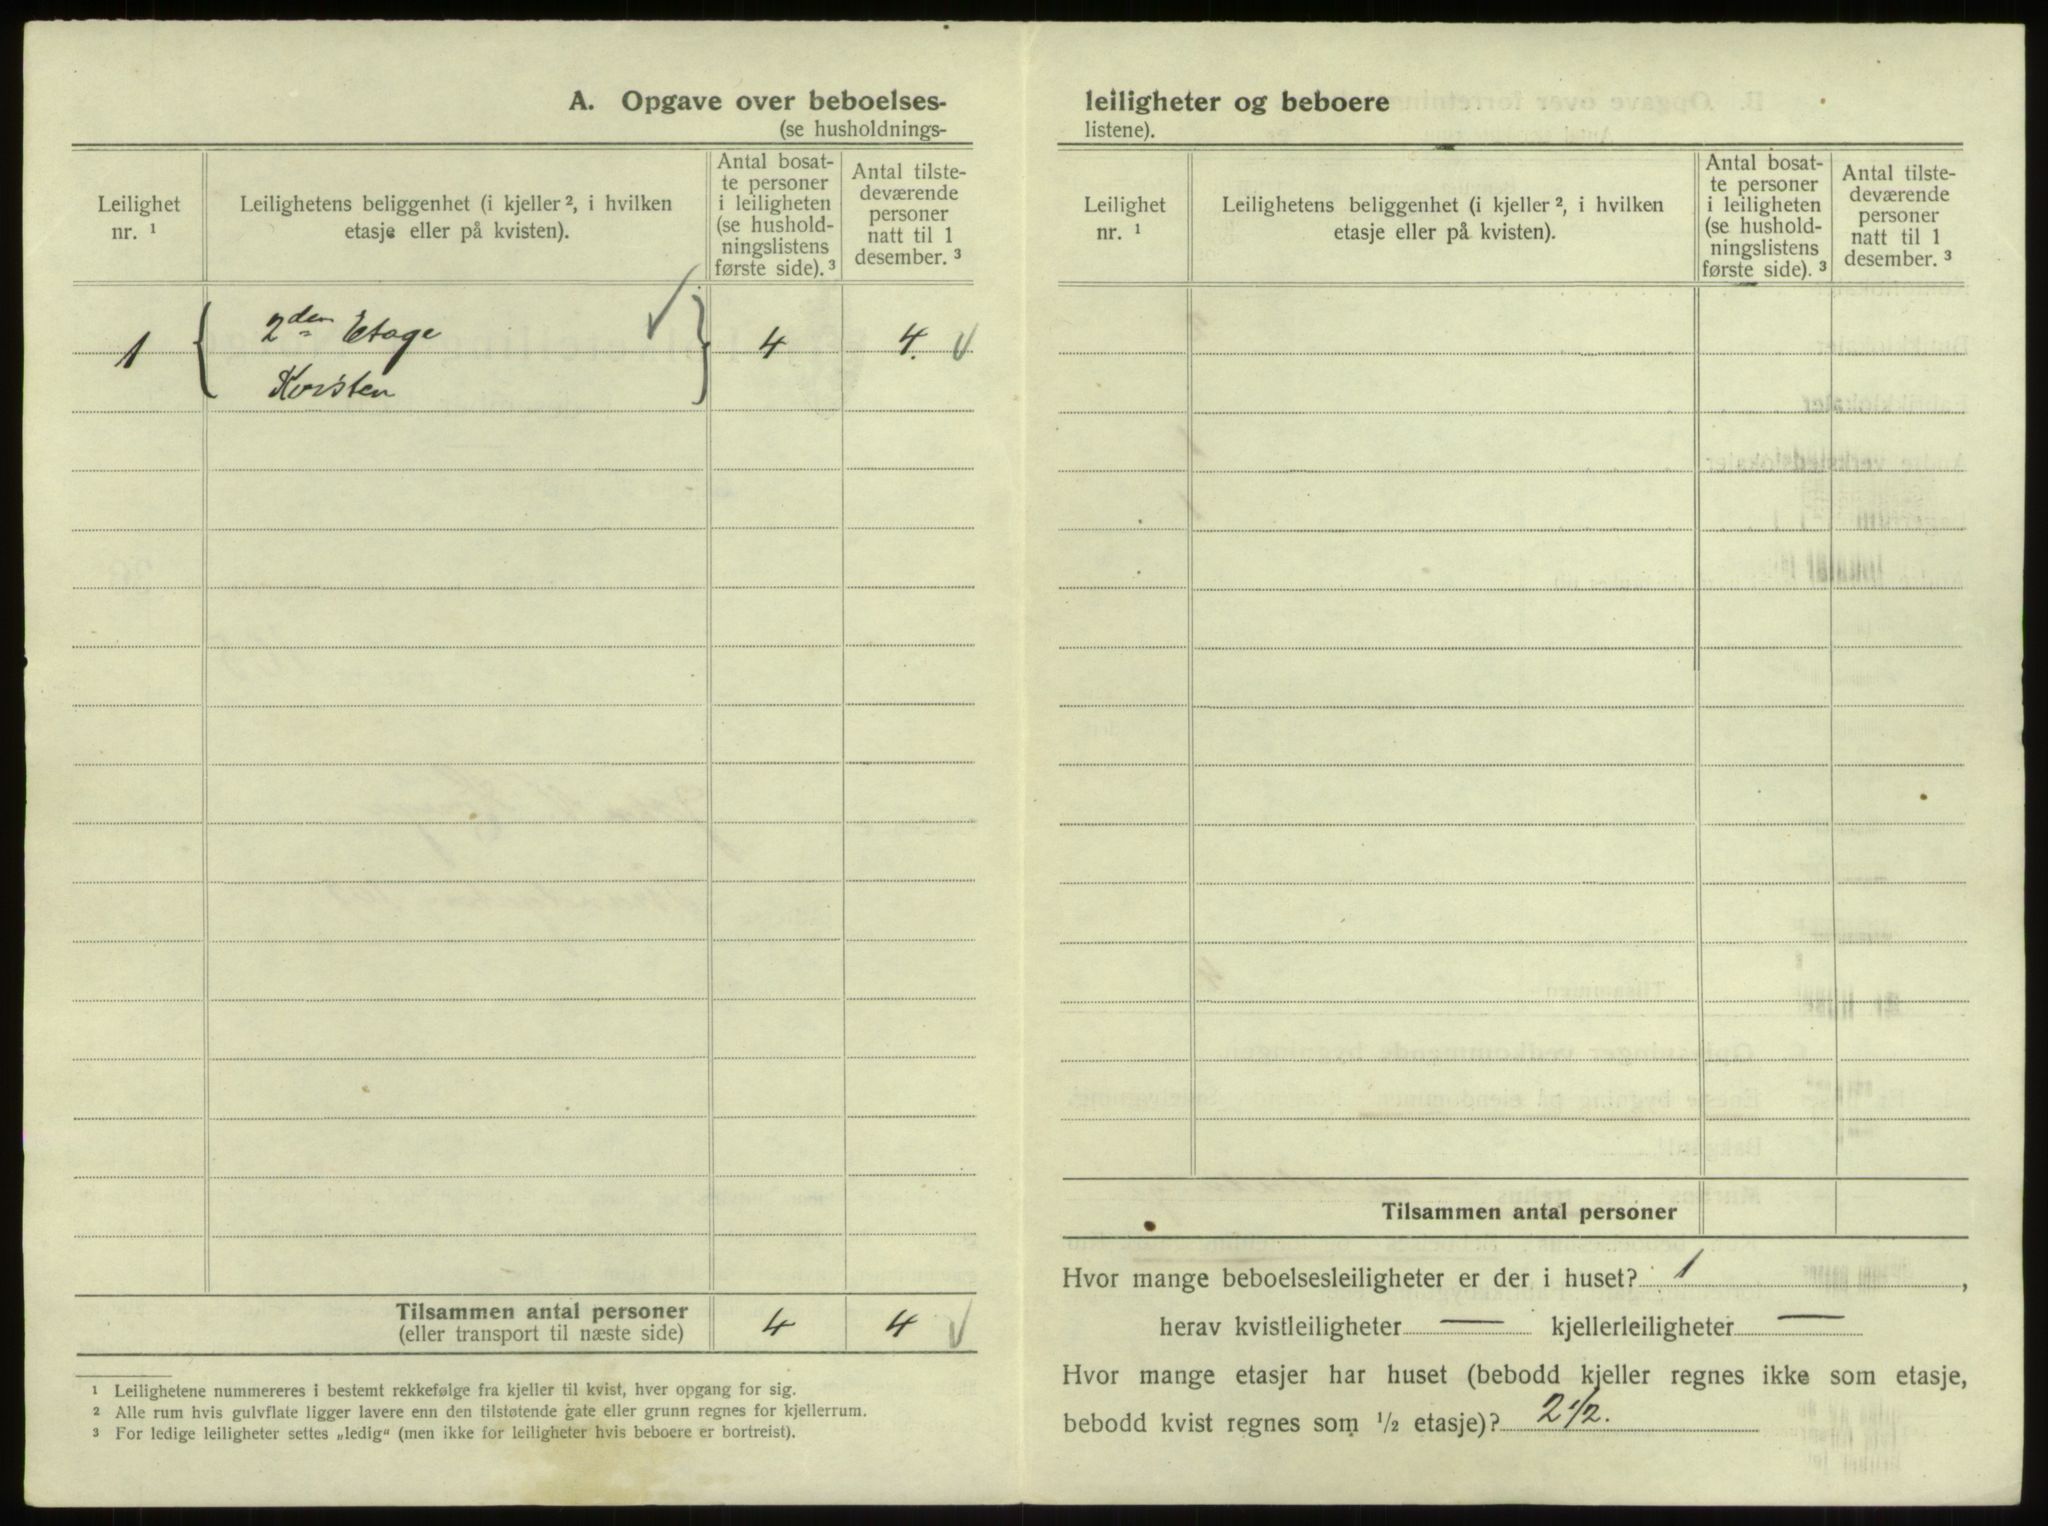 A. Opgave over beboelses-
(se husholdnings-
Leilighet
nr. ¹
Leilighetens beliggenhet (i kjeller ², i hvilken
etasje eller på kvisten).
Antal bosat-
te personer
i leiligheten
(se hushold-
ningslistens
første side). ³
Antal tilste-
deværende
personer
natt til 1
desember. ³
1 { 2den Etage } 4 4.
Kvisten
Tilsammen antal personer 4 4
(eller transport til næste side)
¹ Leilighetene nummereres i bestemt rekkefølge fra kjeller til kvist, hver opgang for sig.
² Alle rum hvis gulvflate ligger lavere enn den tilstøtende gate eller grunn regnes for kjellerrum.
³ For ledige leiligheter settes „ledig“ (men ikke for leiligheter hvis beboere er bortreist).
leiligheter og beboere
listene).
Leilighet
nr. ¹
Leilighetens beliggenhet (i kjeller ², i hvilken
etasje eller på kvisten).
Antal bosat-
te personer
i leiligheten
(se hushold-
ningslistens
første side). ³
Antal tilste-
deværende
personer
natt til 1
desember. ³
Tilsammen antal personer
Hvor mange beboelsesleiligheter er der i huset? 1 ,
herav kvistleiligheter — kjellerleiligheter —
Hvor mange etasjer har huset (bebodd kjeller regnes ikke som etasje,
bebodd kvist regnes som ½ etasje)? 2 1/2.